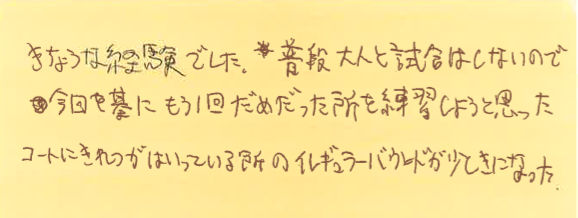 きちょうな経験でした。*普段大人と試合はしないので
*今日を墓にもう1回だめだった所を練習しようと思った
コートにきれつがはいっている所のイレギュラーバウンドが少しきになった。